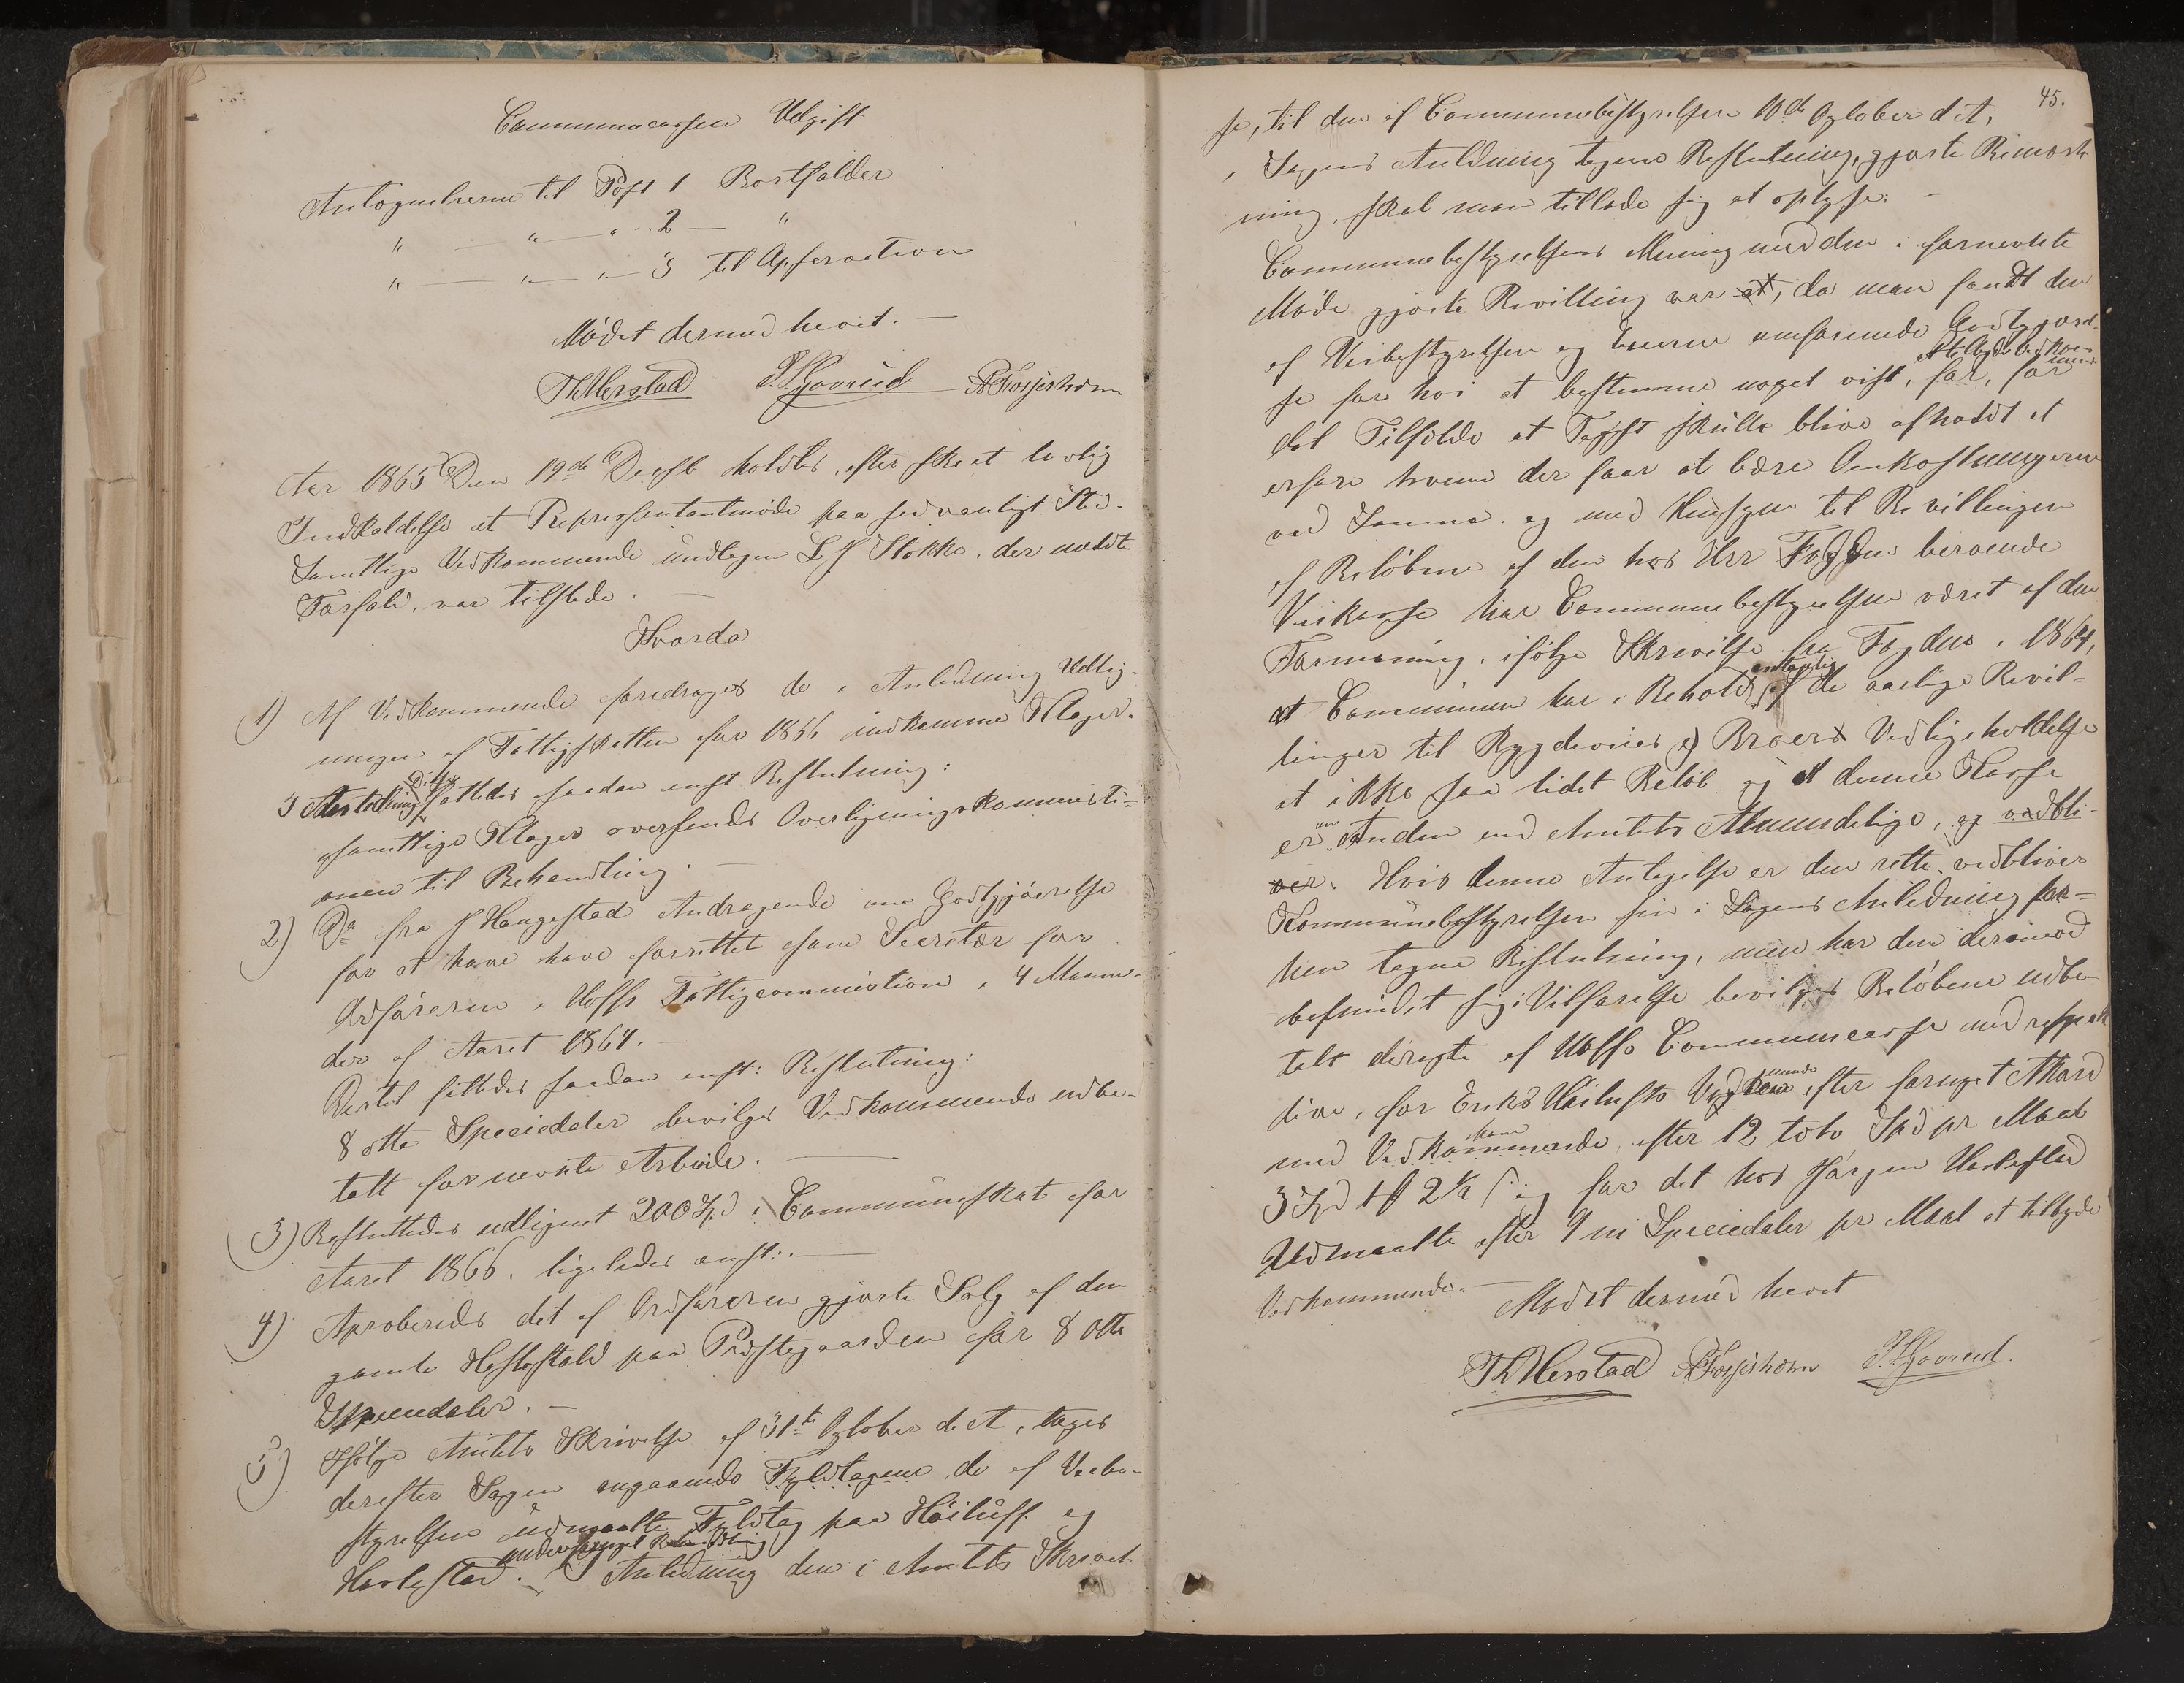 Communecassen Udgift
Antegnelserne til Post 1 Bortfalder
" — " — " 2 — "
" — " — " 3 til Observation
Mødet dermed hevet. —
ThHerstad PHjovrud AFossesholm
Aar 1865 Den 19de Decbr holdtes, efter skeet lovlig
Indkaldelse et Repræsentantmøde paa sedvanligt Sted.
Samtlige Vedkommende undtagen L J Stokke, der meldte
Forfald, var tilstede. —
Hvorda
1) Af Vedkommende foredrages de i Anledning Udlig-
ningen af Fattigskatten for 1866 indkomne Klager.
I Anledning Ditto fattedes saadan enst Beslutning:
samtlige Klager oversendes Overligningskommissi-
onen til Behandling. —
2) Da fra J Haugestad Andragende om Godtgjørelse
for at have have forrettet som Secretær for
Ordføreren i Hoffs Fattigcommission i 4 Maane-
der af Aaret 1864. —
Dertil fattedes saadan enst: Beslutning:
8 otte Speciedaler bevilges Vedkommende udbe-
talt for nevnte Arbeide. —
3) Besluttedes udlignet 200 Spd i Communeskat for
Aaret 1866. ligeledes enst:. —
4) Aproberedes det af Ordføreren gjorte Salg af den
gamle Hestestald paa Prestegaarden for 8 otte
Speciedaler. —
5) Ifølge Amtets Skrivelse af 31te October d. A, tages
derefter Sagen angaaende Fyldtagene, de af Veibe-
styrelsen udmaalte Fyldtag paa Høiluft og
Haslestad. under fornyet Behandling
I Anledning den i Amtets Skrivel-
45.
se, til den af Communebestyrelsen 10de October d. A,
i Sagens Anledning tagne Beslutning, gjorte Bemærk-
ning, skal man tillade sig at oplyse: —
Communebestyrelsens Mening med den i fornevnte
Møde gjorte Bevilling var at, da man fandt den
af Veibestyrelsen og Eierne omforenede Godtgjørel-
se for høi at bestemme noget vist, at tilbyde Vedkom-
mende for, for
det Tilfælde at Taxt skulle blive afholdt at
erfare hvem der faar at bære Omkostningerne
ved Samme. og med Hensyn til Bevillingen
af Beløbene af den hos Hrr Fogden beroende
Veikasse har Communebestyrelsen været af den
Formening, ifølge Skrivelse fra Fogden i 1864,
at Communen har i Behold af de aarlige Bevil-
linger til Bygdeveies og Broers Vedligeholdelse
et ikke saa lidet Beløb og at denne Kasse
er en Anden end Amtets Almindelige, og vedbli-
ver. Hvis denne Antagelse er den rette, vedbliver
Kommunebestyrelsen sin i Sagens Anledning for-
hen tagne Beslutning, men har den derimod
befundet sig i Vilfarelse bevilges Beløbene udbe-
talt directe af Hoffs Communecasse med respek-
tive, for Eriks Høilufts Vedkommende efter foruget Akord
med Vedkommende, efter 12 tolv Spd pr Maal
3 Spd 1 ß 2½ ß og for det hos Jørgen Haslestad
Udmaalte efter 9 ni Speciedaler pr Maal at tilbyde
Vedkommende. —
Mødet dermed hevet
ThHerstad AFossesholm PHjovrud.